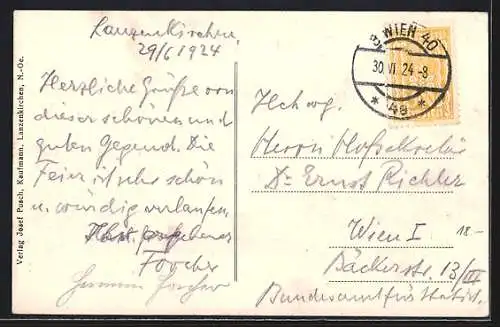 Lanzenkirchen,
29/6 1924
Herzliche Grüße von
dieser schönen und
guten Gegend. Die
Feier ist sehr schön
u. würdig verlaufen.
ergebener
Forcher
Hochwg.
Herrn Hofsekretär
Dr Ernst Richler
Wien I
18-
Bäckerstr. 13/III
Bundesamt für Statist.
WIEN 40
30.VI.24-8
* 4a *
Verlag Josef Pusch, Kaufmann, Lanzenkirchen, N.-Oe.